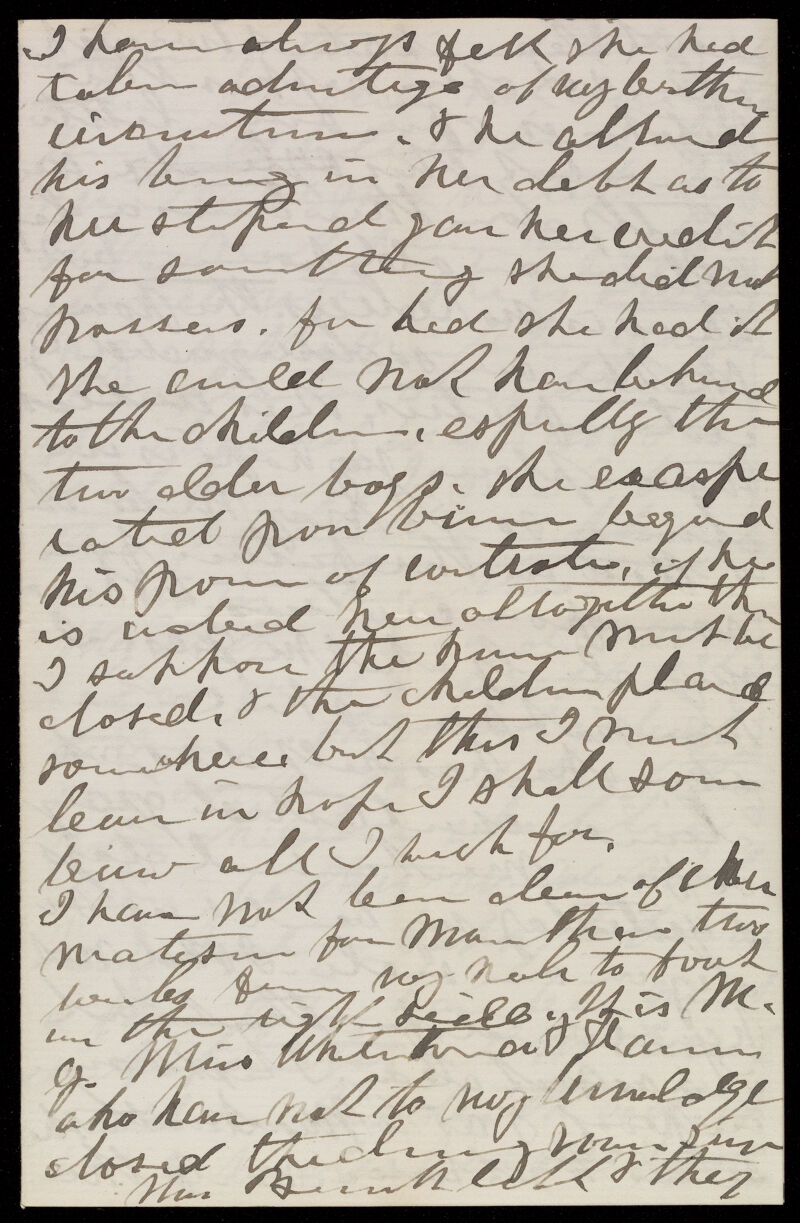 I have always felt she had
taken advantage of my brother
& he allowed
his being in her debt as to
her stipend gave her credit
for something she did not
possess. for had she had it
she could not have behaved
to the children, especially the
two older boys. she exaspe
rated poor beyond
his power of if he
is indeed her altogether then
I suppose the home must be
closed, & the children placed
somewhere but this I must
leave in hope I shall soon
know all I wish for.
I have not been clear of rheu
matism for more than two
weeks from my neck to foot
on the right side It is M.
g. Miss
who have not to my knowledge
closed since
Mrs & they